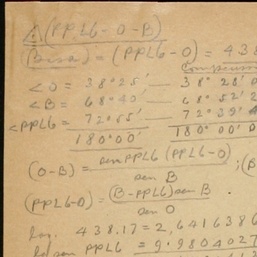 △(PPL6-O-B)
(Base) = (PPL6-O) = 438
<O = 38°25'   38° 28' 0
<B = 68°40'   68° 52' 2
<PPL6 = 72°55'   72° 39' 4
180°00'   180°00'0
(O-B) = sen PPL6 (PPL6-O)
sen B
(PPL6-O) = (B-PPL6) sen B
sen O
log. 438.17 = 2,6416386
sen PPL6 = 9.9804027